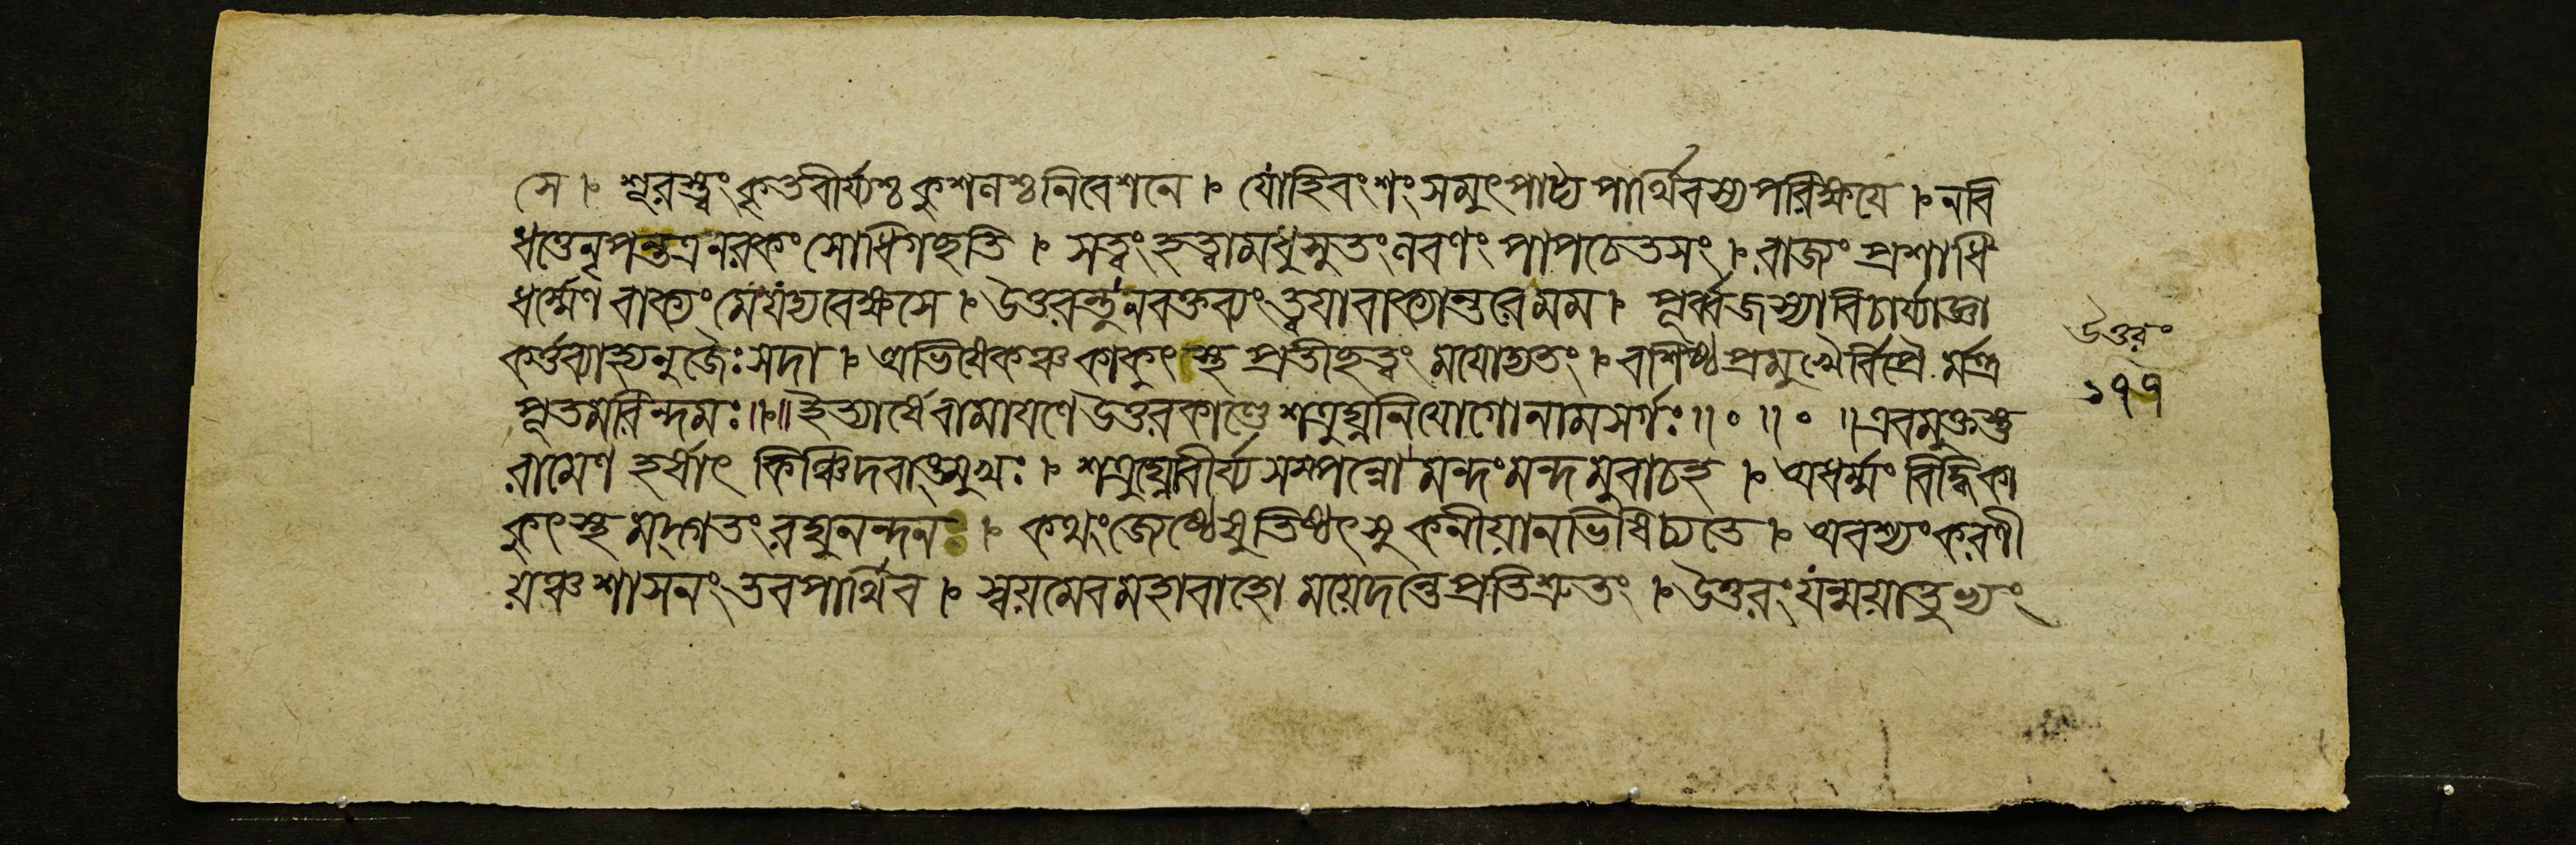 সে । শূরস্ত্বং কৃতবীর্য্যশ্চ কুশলশ্চ নিবেশনে । যোহিবংশং সমুৎপাট্য পার্থিবস্য পরিক্ষয়ে । ন বি
ধত্তে নৃপন্তত্র নরকং সোধিগছতি । স ত্বং হত্বা মধুসুতং লবণং পাপচেতসং । রাজ্যং প্রশাধি
ধর্ম্মেণ বাক্যং মে যদ্যবেক্ষসে । উত্তরন্তু ন বক্তব্যং ত্বয়া বাক্যান্তরে মম । পূর্ব্বজস্যাবিচার্য্যাজ্ঞা
কর্ত্তব্যাহ্যনুজৈঃ সদা । অভিষেকঞ্চ কাকুৎস্থ প্রতীছত্বং ময়োদ্যতং । বশিষ্ঠপ্রমুখৈর্বিপ্রৈ র্মন্ত্র
পূতমরিন্দমঃ ॥ ইত্যার্ষে রামায়ণে উত্তরকাণ্ডে শত্রুঘ্ননিয়োগো নাম সর্গঃ ॥ ০ ॥ ০ ॥ এবমুক্তস্তু
রামেণ হর্ষাৎ কিঞ্চিদবাঙমুখঃ । শত্রুঘ্নো বীর্য্যসম্পন্নো মন্দং মন্দমুবাচহ । অধর্ম্মং বিদ্ধি কা
কুৎস্থ মদ্গতং রঘুনন্দনঃ । কথং জেষ্ঠেষু তিষ্ঠৎসু কনীয়ানভিষিচ্যতে । অবশ্যং করণী
য়ঞ্চ শাসনং তব পার্থিব । স্বয়মেব মহাবাহো ময়েদন্তে প্রতিশ্রুতং । উত্তরং যন্ময়াতুভ্যং
উত্তরং
১৭৭